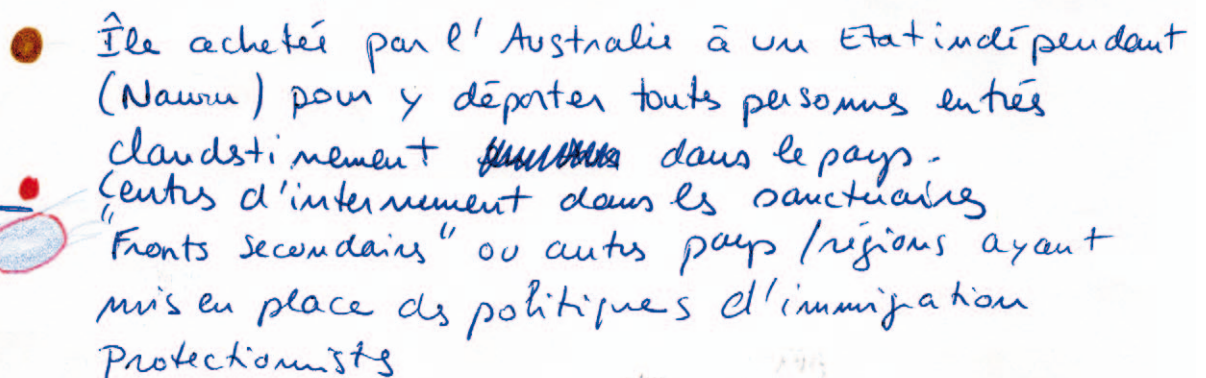 Île achetée par l'Australie à un Etat indépendant
(Nauru) pour y déporter toutes personnes entrés
clandestinement dans le pays.
Centres d'internement dans les sanctuaires
"Fronts secondaires" ou autres pays/régions ayant
mis en place des politiques d'immigration
Protectionnistes